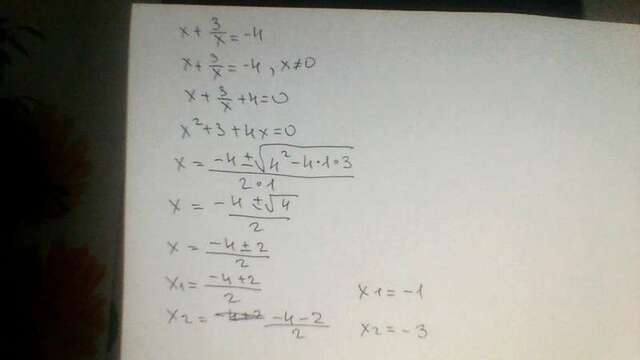 x + 3/x = -4
x + 3/x = -4, x ≠ 0
x + 3/x + 4 = 0
x² + 3 + 4x = 0
x = (-4 ± √(4² - 4·1·3)) / (2·1)
x = (-4 ± √4) / 2
x = (-4 ± 2) / 2
x₁ = (-4 + 2) / 2    x₁ = -1
x₂ = (-4 - 2) / 2    x₂ = -3